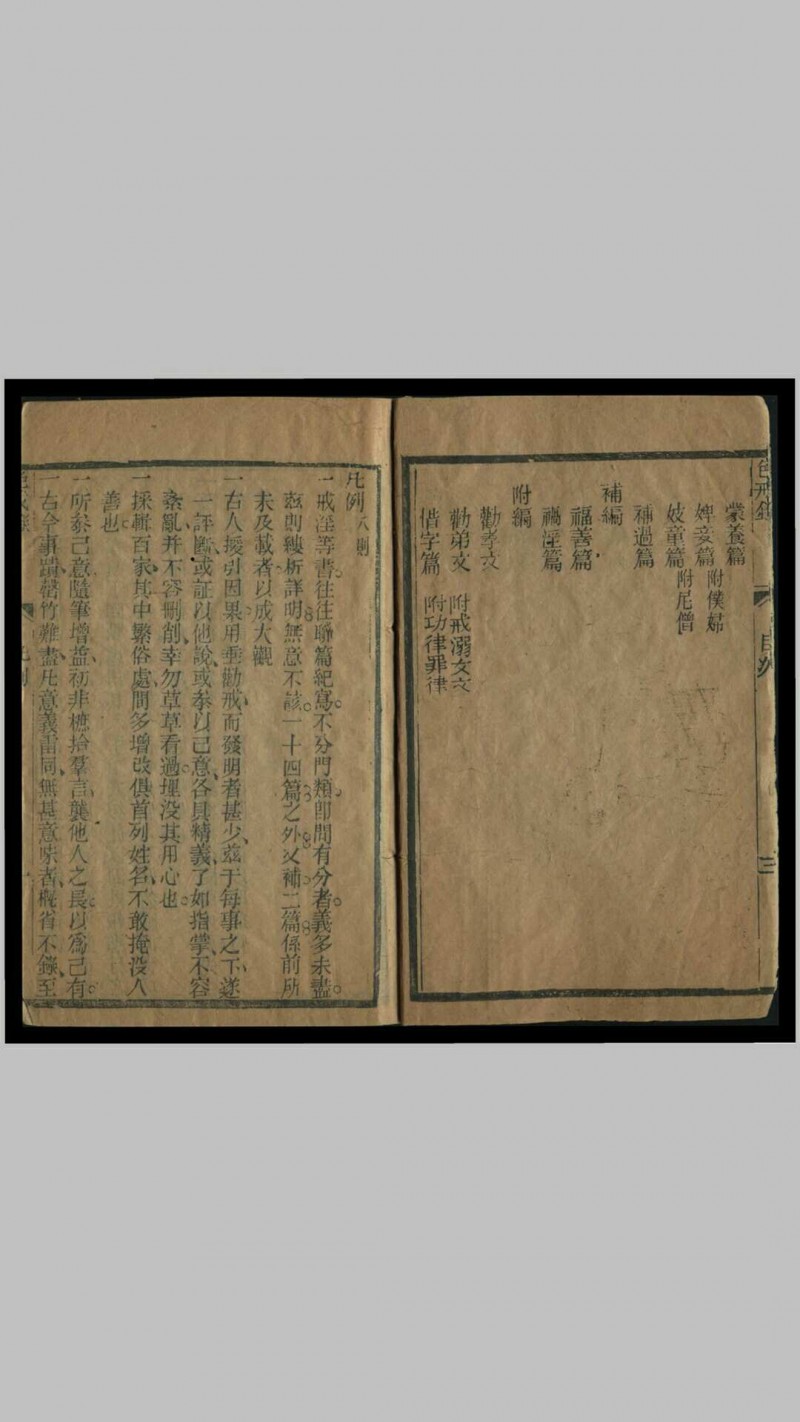 色戒錄
目次
三
蒙養篇
婢妾篇 附僕婦
妓童篇 附尼僧
補過篇
補編
福善篇
禍淫篇
附編
勸孝文
勸弟文 附戒溺女文
惜字篇 附功律罪律
凡例 八則
一戒淫等書往往聯篇紀寫不分門類卽間有分者義多未盡
茲則縷析詳明無意不該一十四篇之外又補二篇係前所
未及載者以成大觀
一古人援引因果用垂勸戒而發明者甚少茲于每事之下遂
一評斷或証以他說或叅以己意各具精義了如指掌不容
紊亂并不容刪削幸勿草草看過埋沒其用心也
一採輯百家其中繁俗處間多增改俱首列姓名不敢掩沒人
善也
一所叅己意隨筆增益初非摭拾羣言襲他人之長以爲己有
一古今事蹟罄竹難盡凡意義雷同無甚意味者槪省不錄至
凡例
一